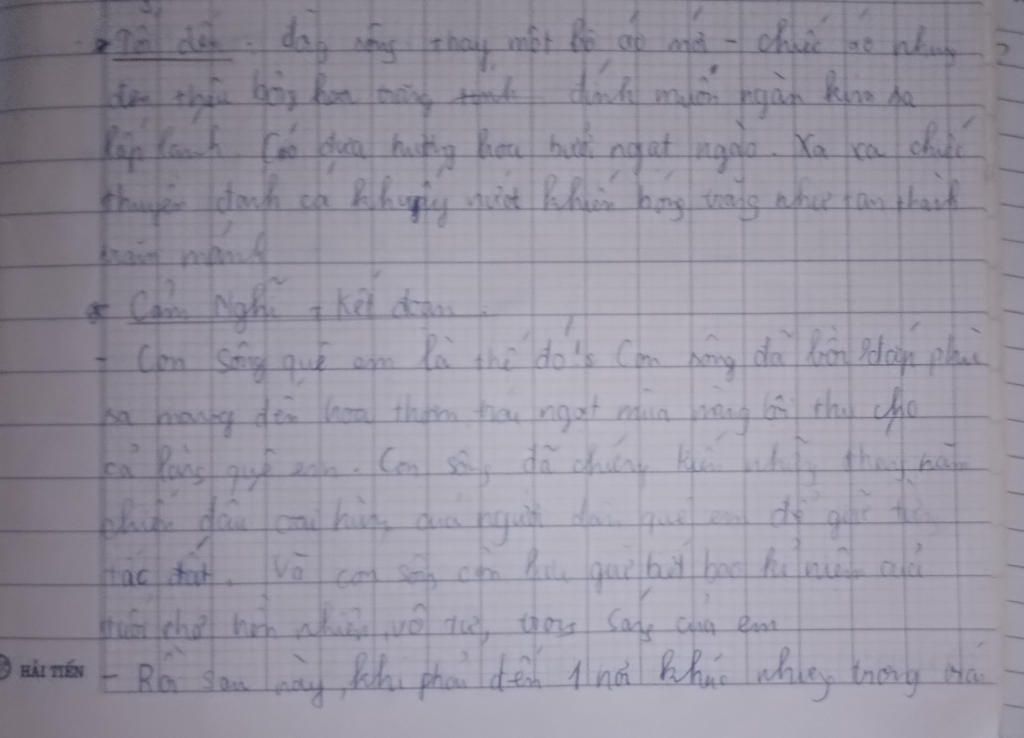 Tối đến: dòng sông thay một bộ áo mới - chiếc áo nhung
thêu bông hoa trắng đính muôn ngàn kim sa
lấp lánh. Gió đưa hương hoa bưởi ngạt ngào. Xa xa chiếc
thuyền đánh cá khuấy nước khiến bóng trăng như tan thành
trăm mảnh
* Cảm Nghĩ + Kết đoạn.
- Con sông quê em là thế đó! Con sông đã bồn đắp phù
sa mang đến hoa thơm trái ngọt mùa màng bội thu cho
cả làng quê em. Con sông đã chứng kiến những tháng năm
chiến đấu oai hùng của người dân quê em để giữ từng
tấc đất. Và con sông còn lưu giữ biết bao kỉ niệm của
tuổi thơ hồn nhiên, vô tư, trong sáng của em
HẢI TIẾN
- Rồi sau này, khi phải đến 1 nơi khác nhưng trong